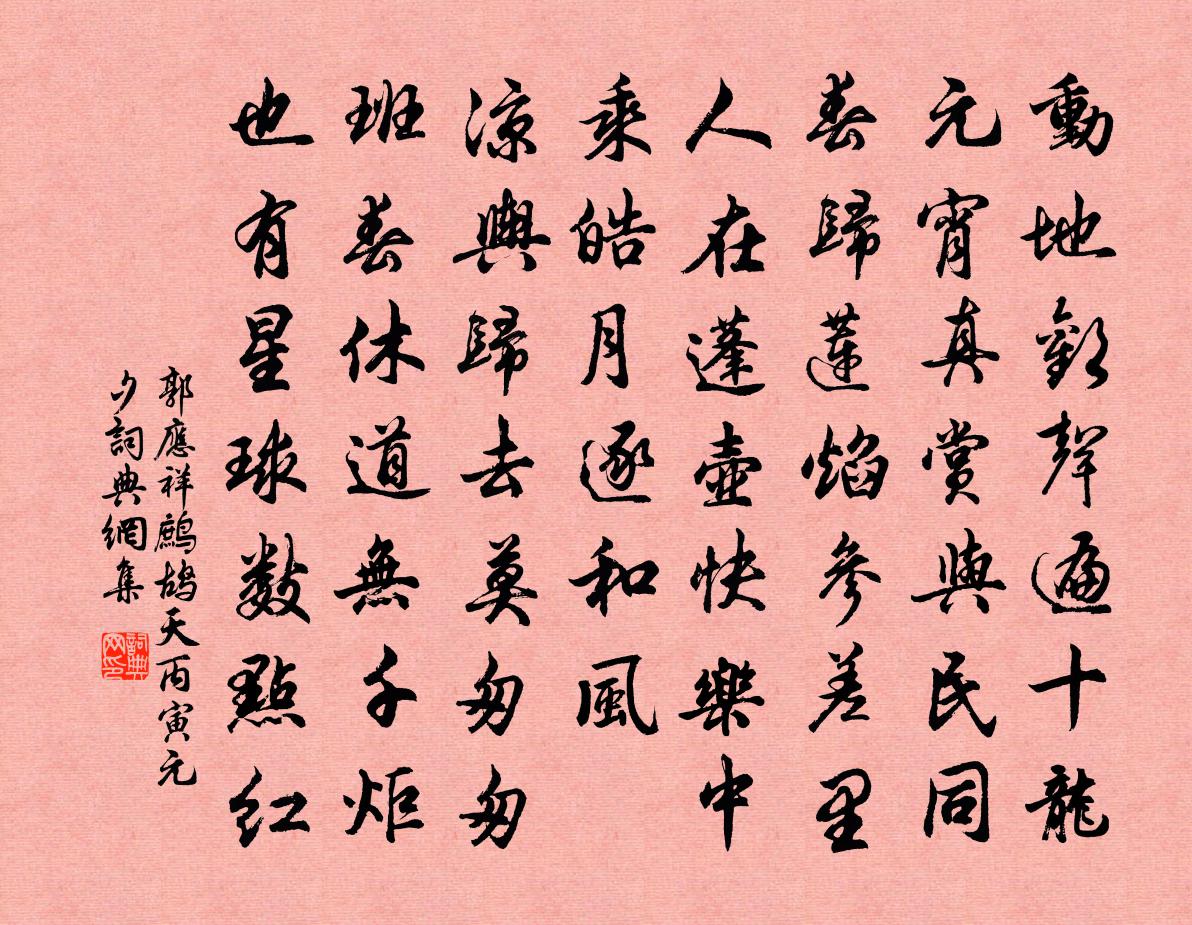 動地歡聲遍十龍
元宵真賞與民同
春歸蓮焰參差里
人在蓬壺快樂中
乘皓月逐和風
涼輿歸去莫匆匆
班春休道無千炬
也有星球數點紅
郭應祥鷓鴣天丙寅元
夕詞典網集
詞典
网印